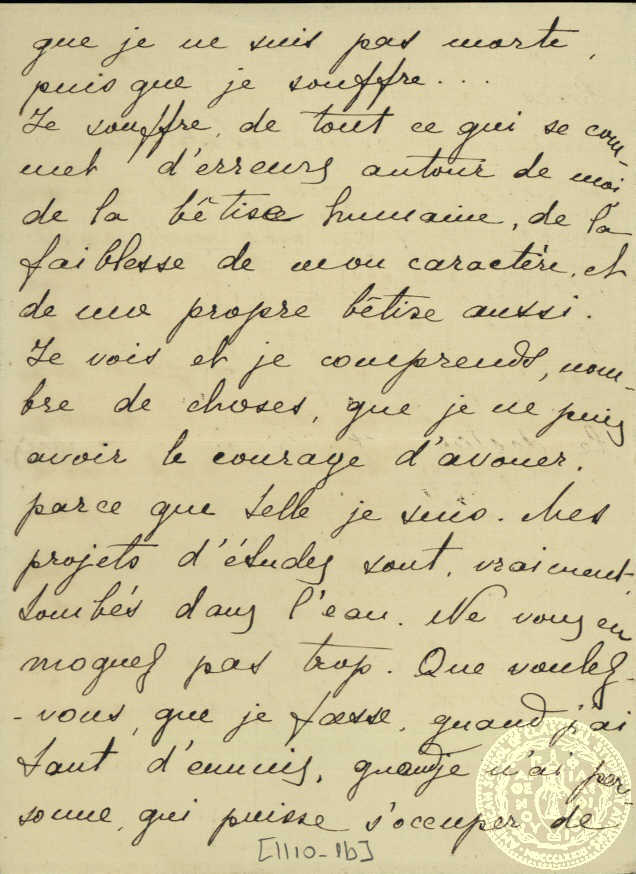 que je ne suis pas morte,
puis que je souffre...
Je souffre, de tout ce qui se com-
met d'erreurs autour de moi,
de la bêtise humaine, de la
faiblesse de mon caractère, et
de ma propre bêtise aussi.
Je vois et je comprends, nom-
bre de choses, que je ne puis
avoir le courage d'avouer.
parce que telle je suis. Mes
projets d'études sont, vraiment,
tombés dans l'eau. Ne vous en
moquez pas trop. Que voulez-
-vous, que je fasse, quand j'ai
tant d'ennuis, quand je n'ai per-
sonne, qui puisse s'occuper de
[1110-1b]